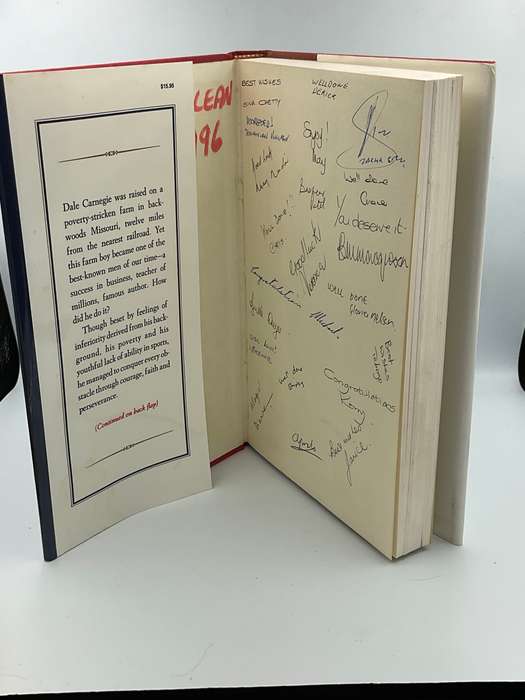 $15.95
Dale Carnegie was raised on a
poverty-stricken farm in back-
woods Missouri, twelve miles
from the nearest railroad. Yet
this farm boy became one of the
best-known men of our time—a
success in business, teacher of
millions, famous author. How
did he do it?
Though beset by feelings of
inferiority derived from his back-
ground, his poverty and his
youthful lack of ability in sports,
he managed to conquer every ob-
stacle through courage, faith and
perseverance.
(Continued on back flap)
CLEAN
96
BEST WISHES
CHETTY
WELL DONE
Good luck
Well done
Grace
You deserve it
Patel
Well Done!
Chris
Goodluck
Congratulations
Michael
WELL DONE
Best
wishes
Lynda
well done
Congratulations
Kony
Best wishes